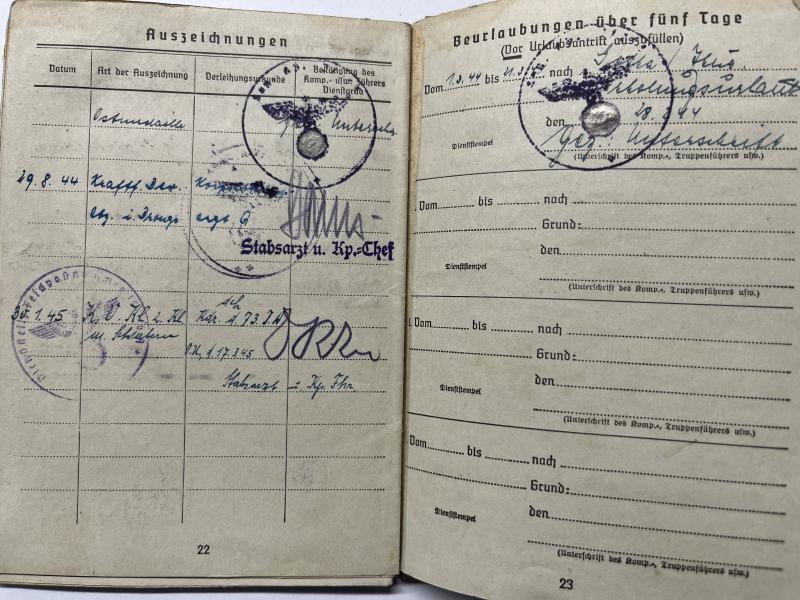 Auszeichnungen
Datum Art der Auszeichnung Verleihungsurkunde Bestätigung des Komp.- usw. Führers Dienstgrad
Ostmedaille Unterschr.
29.8.44 Kraftf. Bew.
Abz. i. Bronze
Stabsarzt u. Kp.-Chef
30.1.45 K. V. Kl. 2. Kl. Kdr. d. 73. J.D.
m. Schwertern
Stabsarzt u. Kp. Fhr.
22
Beurlaubungen über fünf Tage
(Vor Urlaubsantritt auszufüllen)
Vom 1.3.44 bis 21.3. nach
Erholungsurlaub
den 28.2.44
Dienststempel
Gez: Unterschrift
(Unterschrift des Komp.-, Truppenführers usw.)
. Vom bis nach
Grund:
den
Dienststempel
(Unterschrift des Komp.-, Truppenführers usw.)
. Vom bis nach
Grund:
den
Dienststempel
(Unterschrift des Komp.-, Truppenführers usw.)
. Vom bis nach
Grund:
den
Dienststempel
(Unterschrift des Komp.-, Truppenführers usw.)
23